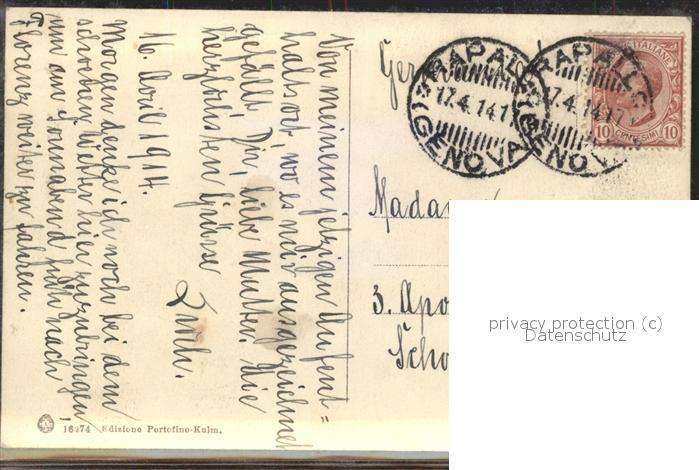 Von meinem jetzigen Aufent=
haltsort, wo es mir ausgezeichnet
gefällt Dir, liebe Mutter, die
herzlichsten Grüsse
16. April 1914.
Morgen denke ich noch bei dem
schönen Wetter hier zuzubringen,
um am Sonnabend früh nach
Florenz weiter zu fahren.
16474 Edizione Portofino-Kulm.
RAPALLO
17.4.14.17
(GENOVA)
RAPALLO
17.4.14.17
(GENOVA)
POSTE ITALIANE
10 CENTESIMI 10
Mada
3. Apo
Scho
privacy protection (c)
Datenschutz